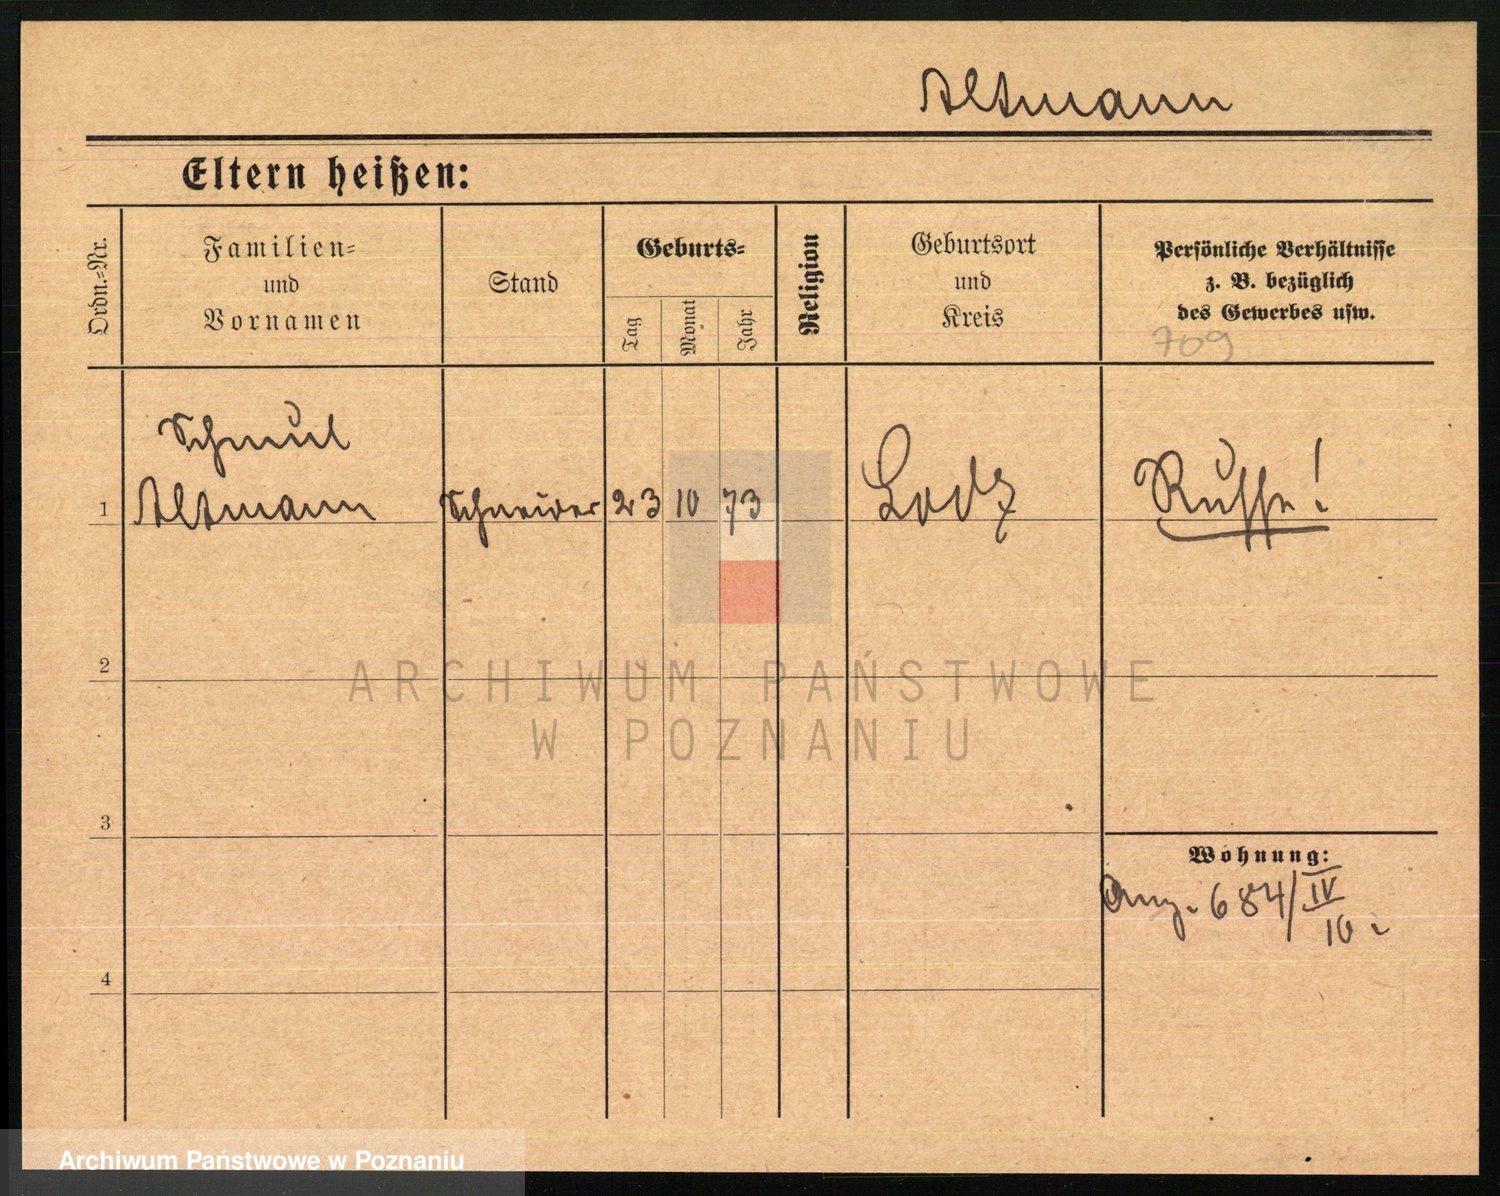 Altmann
Eltern heißen:
Ordn.-Nr.
Familien-
und
Vornamen
Stand
Geburts-
Tag
Monat
Jahr
Religion
Geburtsort
und
Kreis
Persönliche Verhältnisse
z. B. bezüglich
des Gewerbes usw.
709
Schmul
1 Altmann Schneider 23 10 73 Lodz Russe!
2
ARCHIWUM PAŃSTWOWE
W POZNANIU
3
Wohnung:
Anz. 684/IV
10.
4
Archiwum Państwowe w Poznaniu